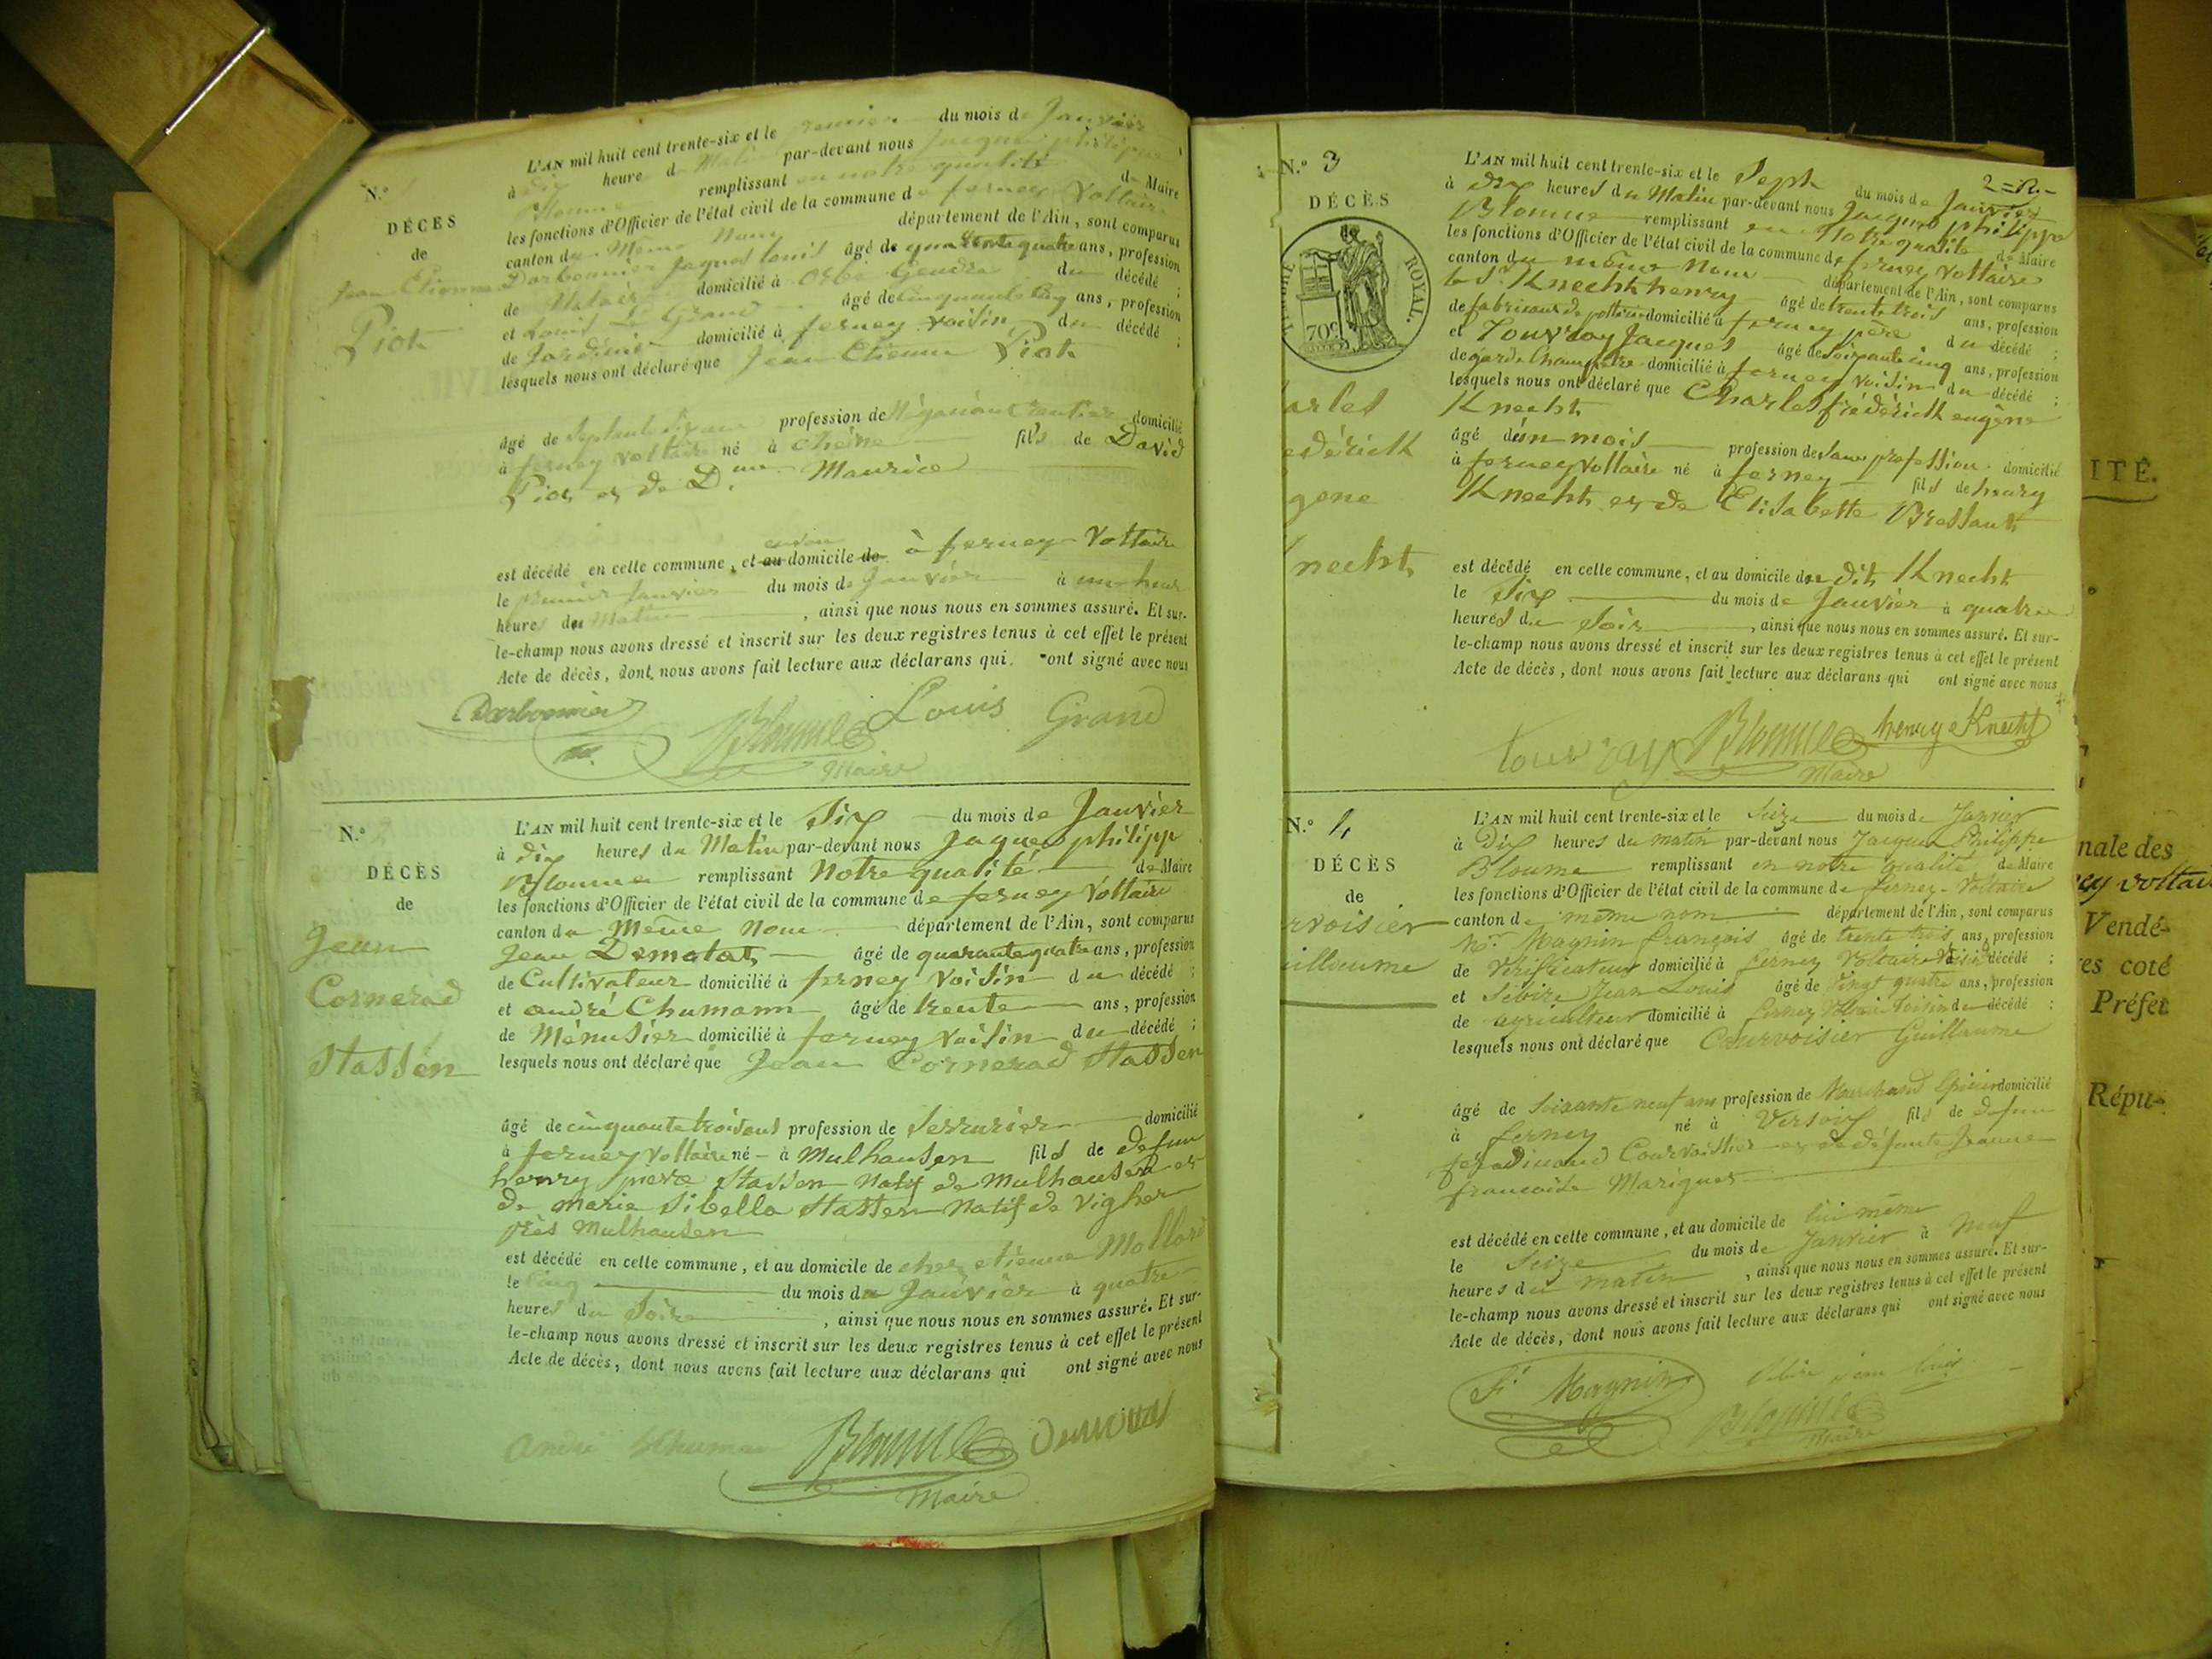 N.o
DÉCÈS
de
Jean Etienne
Piot
L'AN mil huit cent trente-six et le premier du mois de Janvier
à dix heures du Matin par-devant nous Jacques philippe
Bloume remplissant en notre qualité de Maire
les fonctions d'Officier de l'état civil de la commune de ferney Voltaire
canton du Meme Nom département de l'Ain, sont comparus
Darbonnier Jaques Louis âgé de quarente quatre ans, profession
de domicilié à Orbe Gendre du décédé ;
et Louis Grand âgé de cinquante ans, profession
de Jardinier domicilié à ferney voisin du décédé ;
lesquels nous ont déclaré que Jean Etienne Piot
âgé de Septante six ans profession de Négociant rentier domicilié
à ferney Voltaire né à chêne fils de David
Piot et de D. Maurice
est décédé en celle commune, et au domicile de à ferney Voltaire
le premier Janvier du mois de Janvier à une heure
heures du Matin , ainsi que nous nous en sommes assuré. Et sur-
le-champ nous avons dressé et inscrit sur les deux registres tenus à cet effet le présent
Acte de décès, dont nous avons fait lecture aux déclarans qui ont signé avec nous
Darbonnier Bloume Louis Grand
Maire
N.o
DÉCÈS
de
Jean
Cornerad
Stassen
L'AN mil huit cent trente-six et le Six du mois de Janvier
à dix heures du Matin par-devant nous Jaques philipp
Bloume remplissant Notre qualité de Maire
les fonctions d'Officier de l'état civil de la commune de ferney Voltaire
canton du Meme Nom département de l'Ain, sont comparus
Jean Demotat âgé de quarante quatre ans, profession
de Cultivateur domicilié à ferney Voisin du décédé ;
et andré Chumann âgé de trente ans, profession
de Ménusier domicilié à ferney voisin du décédé ;
lesquels nous ont déclaré que Jean Cornerad Stassen
âgé de cinquante trois ans profession de Serrurier domicilié
à ferney Voltaire né à Mulhausen fils de defun
henry piere Stassen Natif de Mulhausen et
de marie Sibella Stassen Natif de Vigher
près Mulhausen
est décédé en celle commune, et au domicile de chez etienne Mollard
le cinq du mois de Janvier à quatre
heures du Soire , ainsi que nous nous en sommes assuré. Et sur-
le-champ nous avons dressé et inscrit sur les deux registres tenus à cet effet le présent
Acte de décès, dont nous avons fait lecture aux déclarans qui ont signé avec nous
André Schuman Bloume
Maire
N.o 3
DÉCÈS
TIMBRE ROYAL.
70c
arles
edérick
gene
necht
2
L'AN mil huit cent trente-six et le Sept du mois de Janvier
à dix heures du Matin par-devant nous Jacques philippe
Bloume remplissant en Notre qualité de Maire
les fonctions d'Officier de l'état civil de la commune de ferney Voltaire
canton du même Nom département de l'Ain, sont comparus
le Sr Knecht henry âgé de trente trois ans, profession
de fabricant de potterie domicilié à ferney père du décédé ;
et Touvray Jacques âgé de soixante cinq ans, profession
de garde champetre domicilié à ferney voisin du décédé ;
lesquels nous ont déclaré que Charles frédérick eugène
Knecht
âgé d'un mois profession de Sans profession domicilié
à ferney Voltaire né à ferney fils de henry
Knecht et de Elisabette Bressant
est décédé en celle commune, et au domicile du dit Knecht
le Six du mois de Janvier à quatre
heures du Soir , ainsi que nous nous en sommes assuré. Et sur-
le-champ nous avons dressé et inscrit sur les deux registres tenus à cet effet le présent
Acte de décès, dont nous avons fait lecture aux déclarans qui ont signé avec nous
touvray Bloume henry Knecht
Maire
N.o 4
DÉCÈS
de
rvoisier
uillaume
L'AN mil huit cent trente-six et le Seize du mois de Janvier
à Dix heures du matin par-devant nous Jacques Philippe
Bloume remplissant en notre qualité de Maire
les fonctions d'Officier de l'état civil de la commune de ferney-Voltaire
canton de même nom département de l'Ain, sont comparus
Mr. Magnin françois âgé de trente trois ans, profession
de Vérificateur domicilié à ferney Voltaire Voisin du décédé ;
et Sébire Jean Louis âgé de Vingt quatre ans, profession
de agriculteur domicilié à ferney Voltaire Voisin du décédé ;
lesquels nous ont déclaré que Courvoisier Guillaume
âgé de Soixante neuf ans profession de Marchand Epicier domicilié
à ferney né à Versoix fils de defun
ferdinand Courvoisier et de défunte Jeanne
francoise Marignes
est décédé en cette commune, et au domicile de lui même
le Seize du mois de Janvier à Neuf
heures du matin , ainsi que nous nous en sommes assuré. Et sur-
le-champ nous avons dressé et inscrit sur les deux registres tenus à cet effet le présent
Acte de décès, dont nous avons fait lecture aux déclarans qui ont signé avec nous
F. Magnin Sebire jean louis
Bloume
Maire
ITÉ.
nale des
ey voltai
Vendé-
es coté
Préfet
Répu-